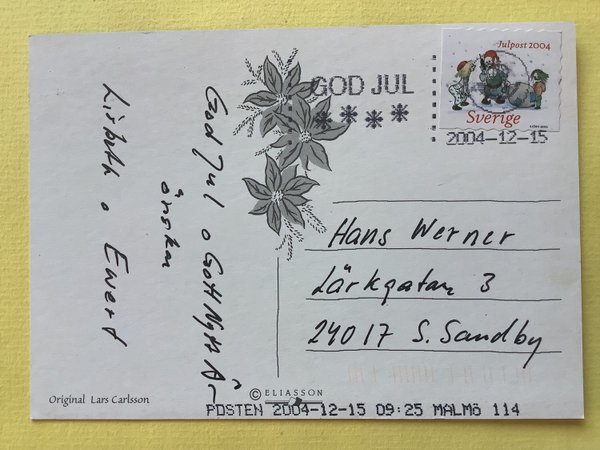 God Jul o Gott Nytt År
önskar
Lisbeth o Ewert
Original Lars Carlsson
© ELIASSON
GOD JUL
****
Julpost 2004
Sverige
2004-12-15
Hans Werner
Lärkgatan 3
24017 S. Sandby
POSTEN 2004-12-15 09:25 MALMÖ 114